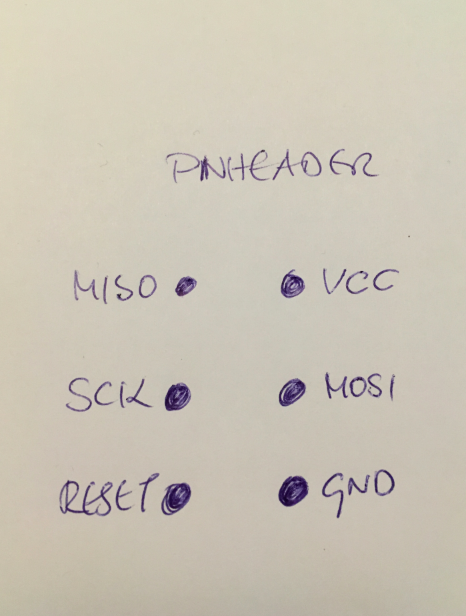 PINHEADER
MISO VCC
SCK MOSI
RESET GND